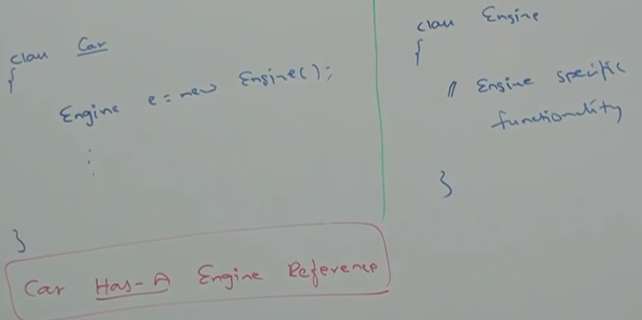 class Car
{
Engine e = new Engine();
:
}
Car Has-A Engine Reference
class Engine
{
// Engine specific
functionality
}